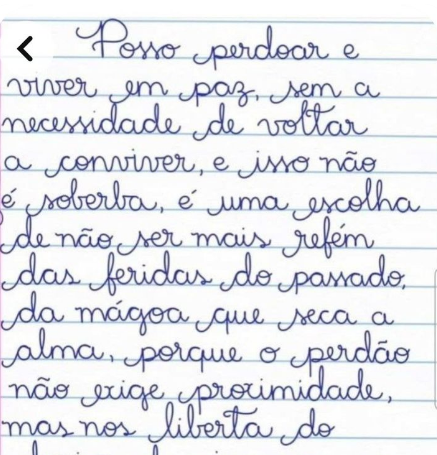 Posso perdoar e
viver em paz, sem a
necessidade de voltar
a conviver, e isso não
é soberba, é uma escolha
de não ser mais refém
das feridas do passado,
da mágoa que seca a
alma, porque o perdão
não exige proximidade,
mas nos liberta do